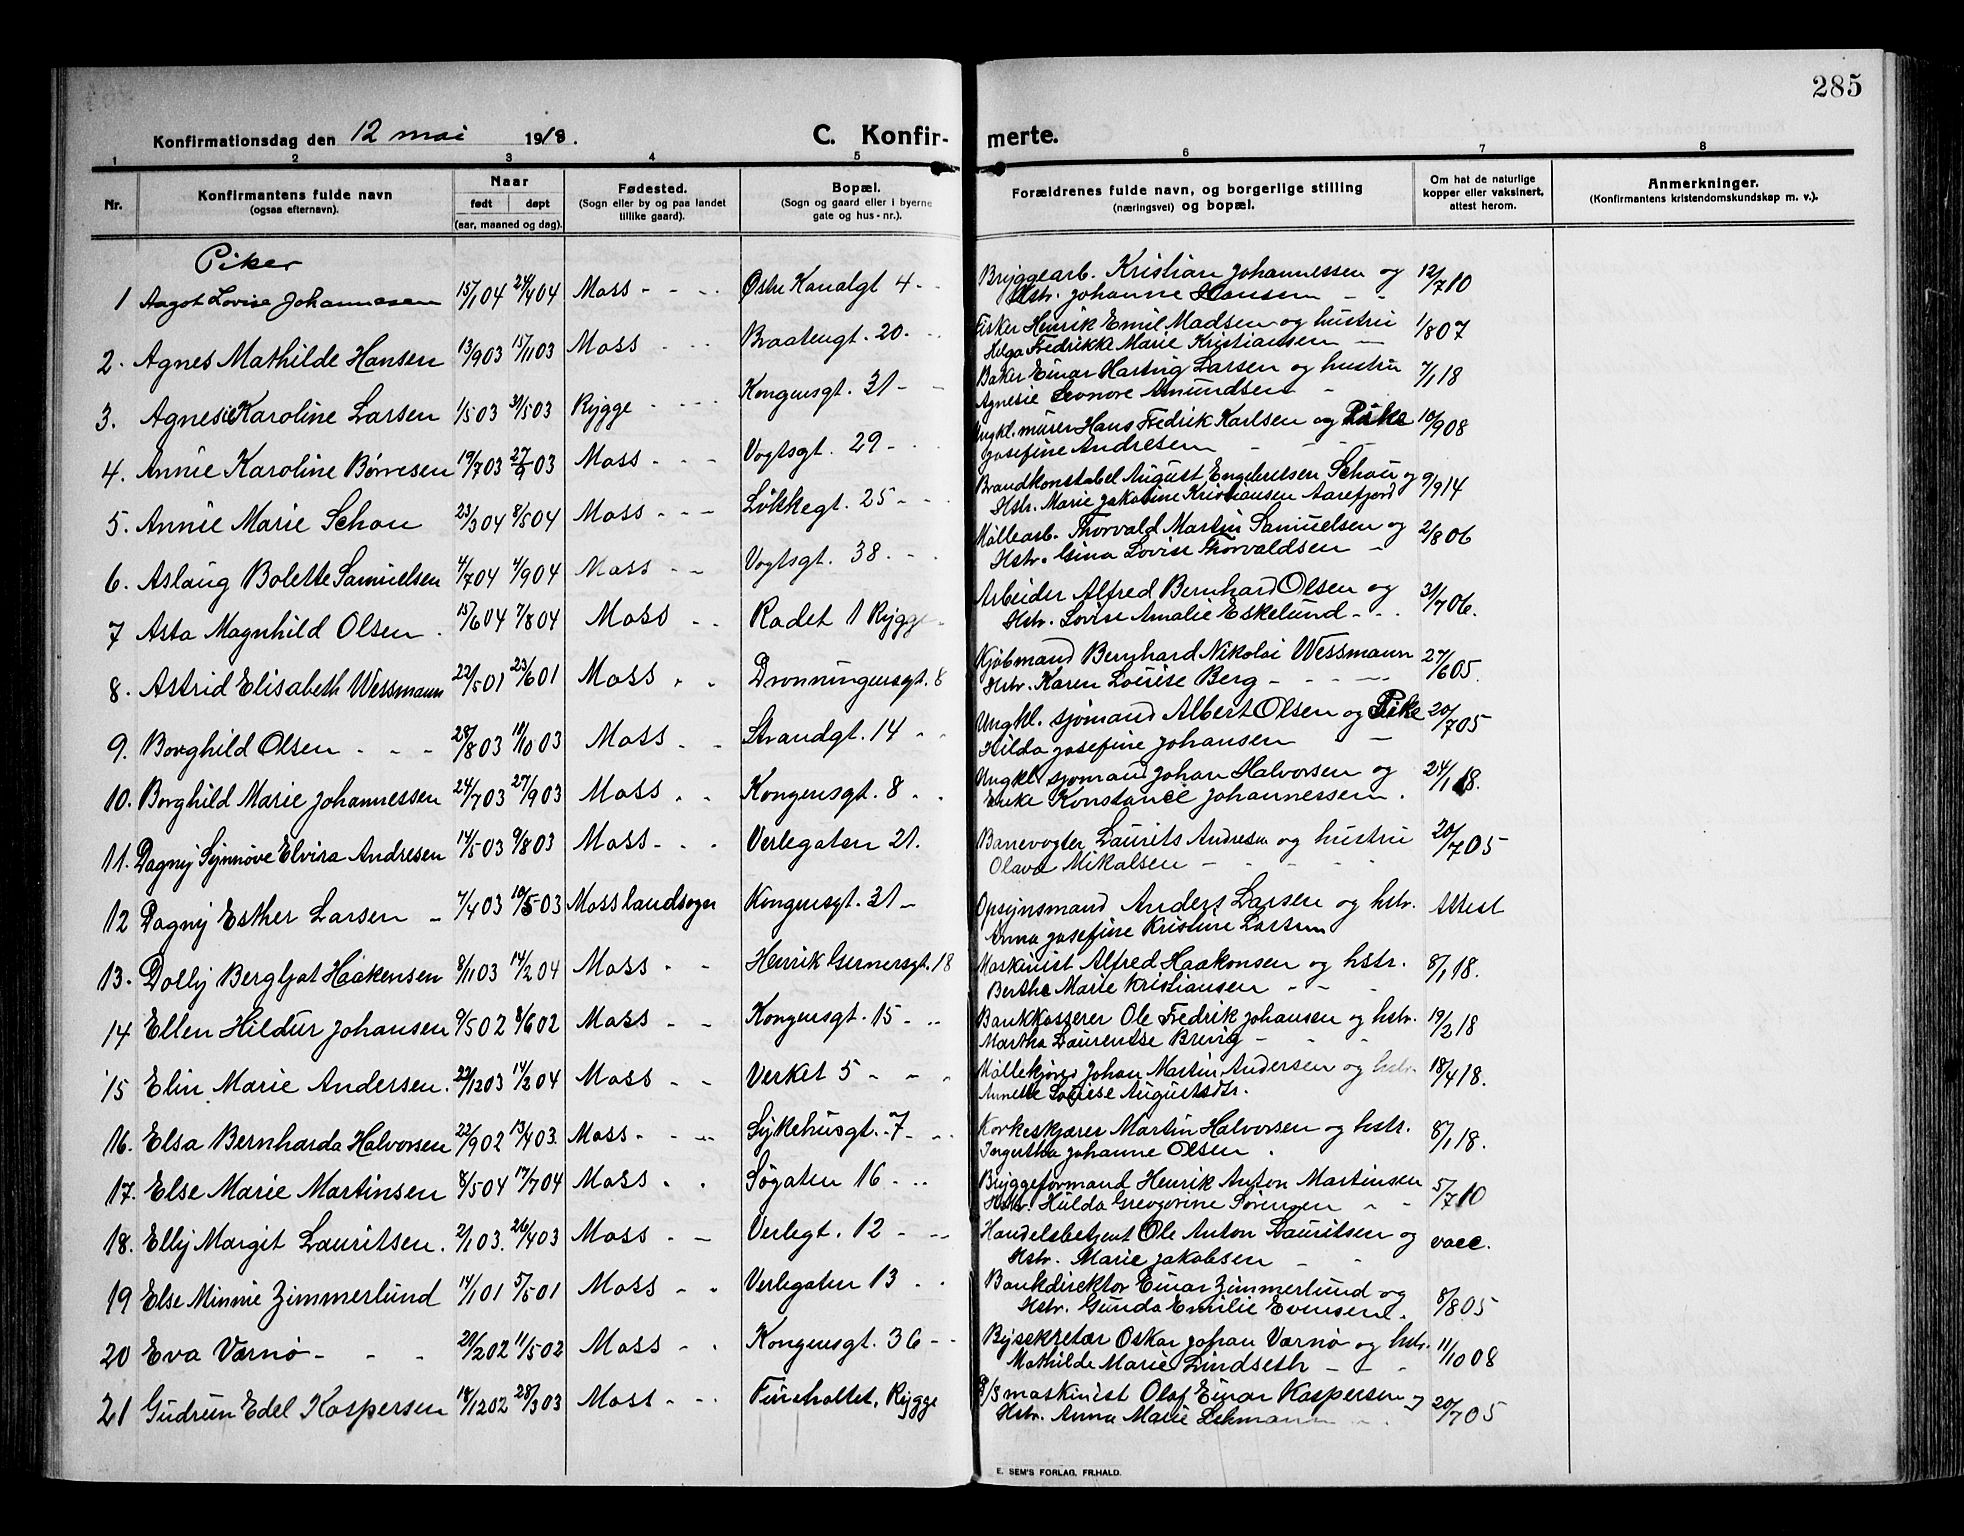 285
Konfirmationsdag den 12 mai 1918.
C. Konfirmerte.
1 2 3 4 5 6 7 8
Nr.
Konfirmantens fulde navn
(ogsaa efternavn).
Naar
født døpt
(aar, maaned og dag).
Fødested.
(Sogn eller by og paa landet
tillike gaard).
Bopæl.
(Sogn og gaard eller i byerne
gate og hus-nr.).
Forældrenes fulde navn, og borgerlige stilling
(næringsvei) og bopæl.
Om hat de naturlige
kopper eller vaksinert,
attest herom.
Anmerkninger.
(Konfirmantens kristendomskundskap m. v.).
Piker
1 Aagot Lovise Johannessen 15/1 04 24/4 04 Moss - - - Østre Kanalgt 4 - Bryggearb. Kristian Johannessen og 12/7 10
Hstr. Johanne Hansen - -
2. Agnes Mathilde Hansen 13/9 03 15/11 03 Moss - - - Braatengt. 20. - Fisker Henrik Emil Madsen og hustru 1/8 07
Helga Fredrikke Marie Kristiansen -
3. Agnesie Karoline Larsen 1/5 03 31/5 03 Rygge - - - Kongensgt. 31 - - Baker Einar Hartvig Larsen og hustru 7/1 18
Agnesie Leonore Amundsen -
4. Annie Karoline Børresen 19/7 03 27/9 03 Moss - - - Vogtsgt. 29 - - Ungkl. murer Hans Fredrik Karlsen og Pike 10/9 08
Josefine Andresen - - -
5. Annie Marie Schou 23/3 04 8/5 04 Moss - - - Løkkegt. 25 - - Brandkonstabel August Engebretsen Schou og 9/9 14
Hstr. Marie Jakobine Kristiansen Aarefjord
6. Aslaug Bolette Samuelsen 4/7 04 4/9 04 Moss - - Vogtsgt. 38. - - Møllearb. Thorvald Martin Samuelsen og 2/8 06
Hstr. Gina Lovise Thorvaldsen -
7 Asta Magnhild Olsen. 15/6 04 7/8 04 Moss - - Rådet 1 Rygge - Arbeider Alfred Bernhard Olsen og 31/7 06.
Hstr. Lovise Amalie Eskelund - - -
8. Astrid Elisabeth Wessmann 22/5 01 23/6 01 Moss - - Dronningensgt. 8 Kjøbmand Bernhard Nikolai Wessmann 27/6 05.
Hstr. Karen Louise Berg - - - -
9. Borghild Olsen - - - 28/8 03 18/10 03 Moss - - Strandgt. 14 - - Ungkl. sjømand Albert Olsen og Pike 20/7 05
Hilda Josefine Johansen -
10. Borghild Marie Johannessen 24/7 03 27/9 03 Moss - - Kongensgt. 8 - - Ungkl. sjømand Johan Halvorsen og 24/1 18.
Enke Konstance Johannessen.
11. Dagny Synnøve Elvira Andresen 14/5 03 9/8 03 Moss - - - Verlegaten 21. Banevogter Laurits Andresen og hustru 20/7 05
Olava Mikalsen - - - - -
12 Dagny Esther Larsen - 7/4 03 10/5 03 Moss landsogn Kongensgt. 31 - Opsynsmand Anders Larsen og hstr. Attest
Anna Josefine Kristine Larsen
13. Dolly Bergljot Haakensen 8/11 03 14/2 04 Moss - - Henrik Gernersgt. 18 Maskinist Alfred Haakonsen og hstr. 8/1 18.
Berthe Marie Kristiansen - - -
14 Ellen Hildur Johansen 9/5 02 8/6 02 Moss - - Kongensgt. 15 - - Bankkasserer Ole Fredrik Johansen og hstr. 19/2 18
Martha Laurentse Brevig - - -
15 Elin Marie Andersen. 22/12 03 14/2 04 Moss - - Verket 5 - - - Møllekjører Johan Martin Andersen og hstr. 18/4 18.
Annette Louise Augustsdtr.
16. Elsa Bernharda Halvorsen 22/9 02 13/4 03. Moss - - - Sykehusgt. 7 - - Korkeskjærer Martin Halvorsen og hstr. 8/1 18.
Ingertha Johanne Olsen.
17. Else Marie Martinsen 8/5 04 17/7 04 Moss - - Søgaten 16 - - Bryggeformand Henrik Anton Martinsen 5/7 10
Hstr. Hulda Gregorine Sørensen - -
18. Elly Margit Lauritsen. 2/1 03. 26/4 03 Moss - - Verlegt. 12 - - Handelsbetjent Ole Anton Lauritsen og vacc.
Hstr. Marie Jakobsen - -
19 Else Minnie Zimmerlund 14/1 01 5/5 01 Moss - - Verlegaten 13 - - Bankdirektør Einar Zimmerlund og 8/8 05
Hstr. Gunda Emilie Evensen.
20 Eva Værnø - - - 20/2 02 11/5 02 Moss - - Kongensgt. 36 - - Bysekretær Oskar Johan Værnø og hstr. 11/10 08
Mathilde Marie Lindseth - - -
21 Gudrun Edel Kaspersen 14/12 02 28/3 03 Moss - - Fureholtet, Rygge D/S maskinist Olaf Einar Kaspersen og 20/7 05
Hstr. Anna Marie Lehmann - -
E. SEM'S FORLAG, FR.HALD.